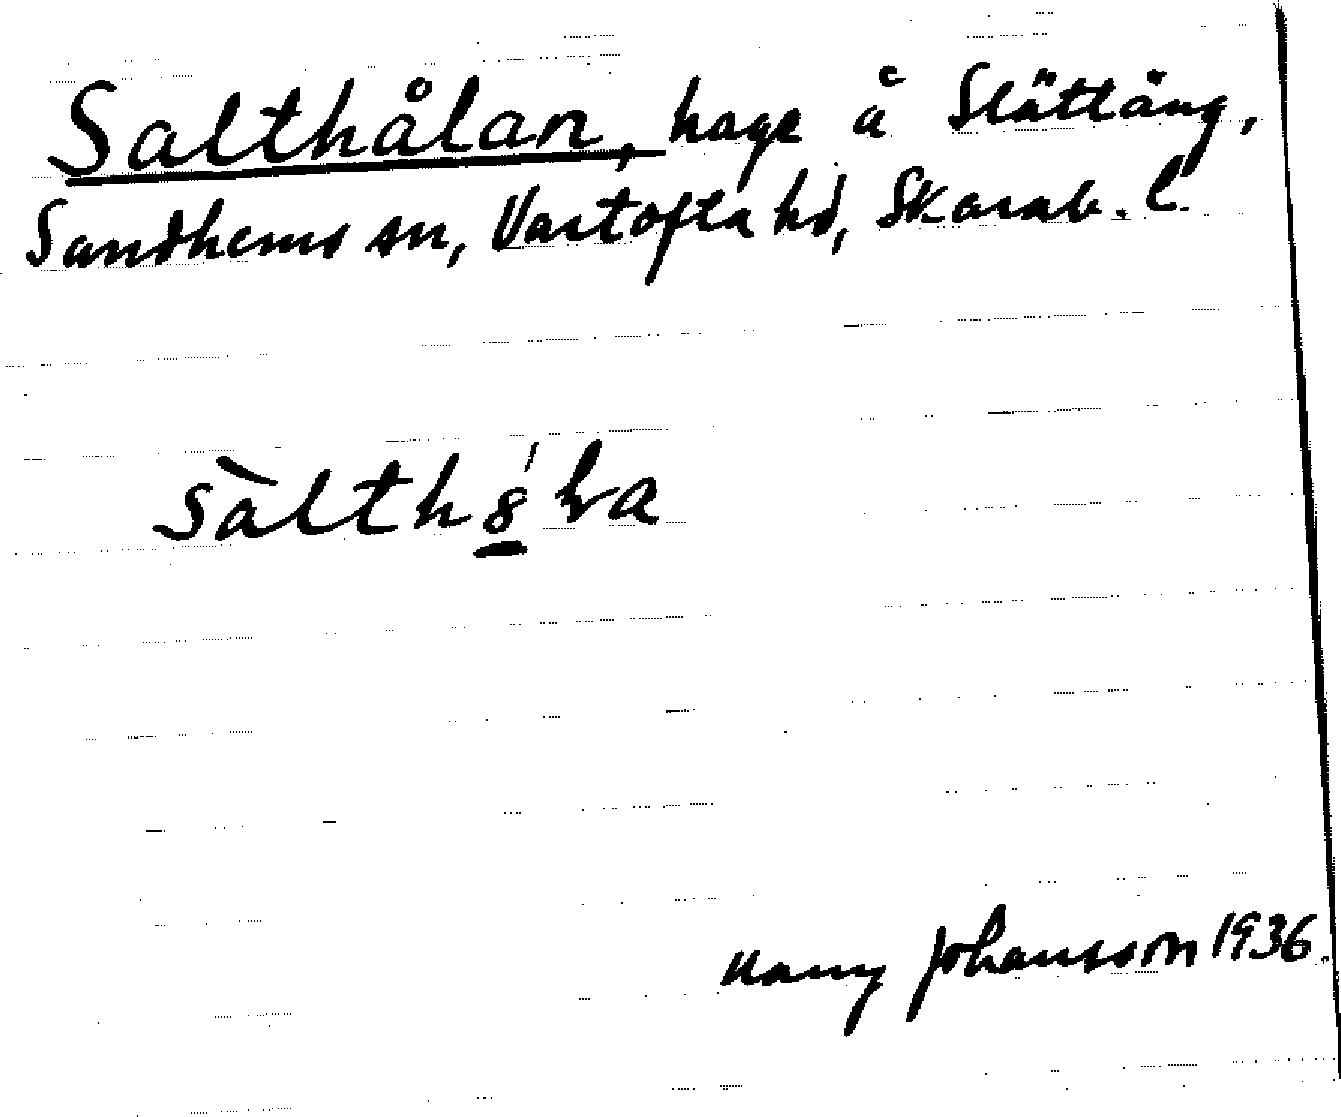 Salthålan, hage å Slättäng,
Sandhems sn, Vartofta hd, Skarab. l.
Harry Johansson 1936.